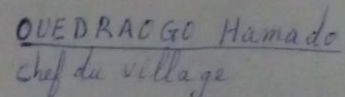 OUEDRAOGO Hamado
chef du village